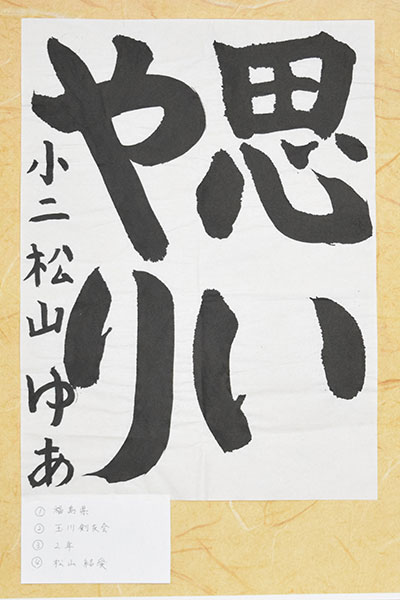 思い
やり
小二 松山ゆあ
① 福島県
② 玉川剣友会
③ 2年
④ 松山 結愛